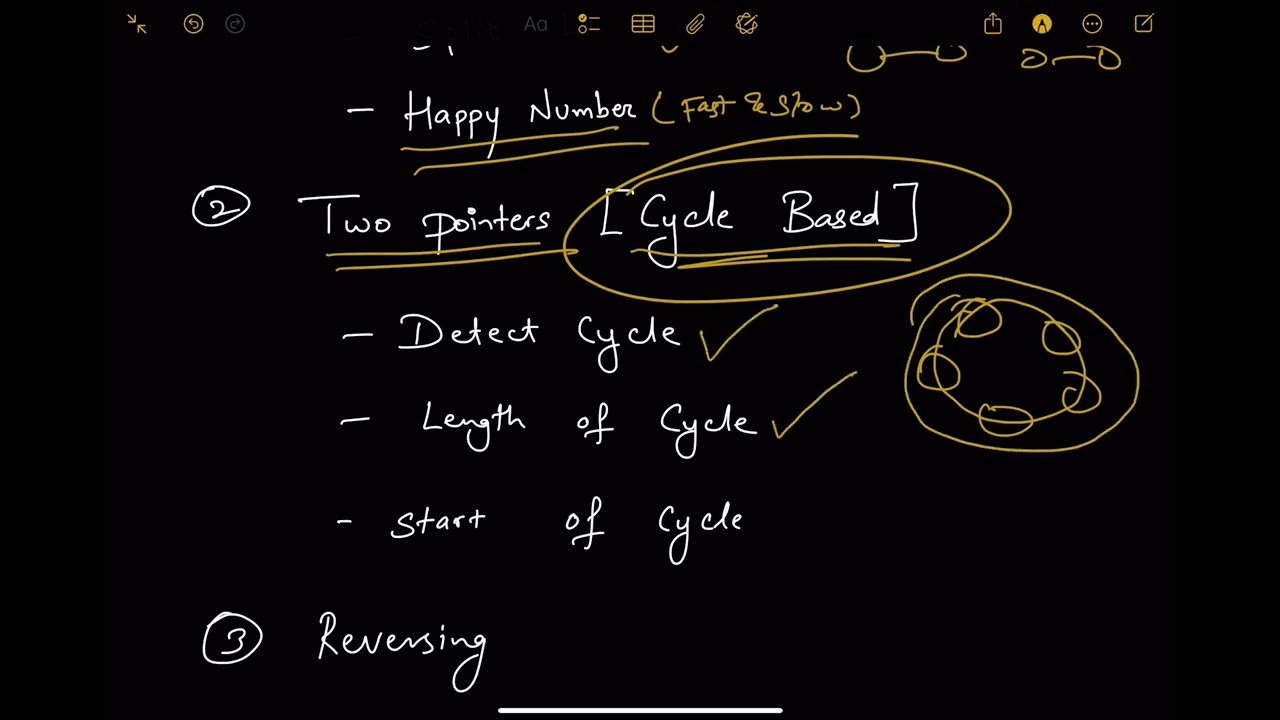 Aa
- Happy Number (Fast & Slow)
② Two pointers [Cycle Based]
- Detect Cycle ✓
- Length of Cycle ✓
- Start of Cycle
③ Reversing